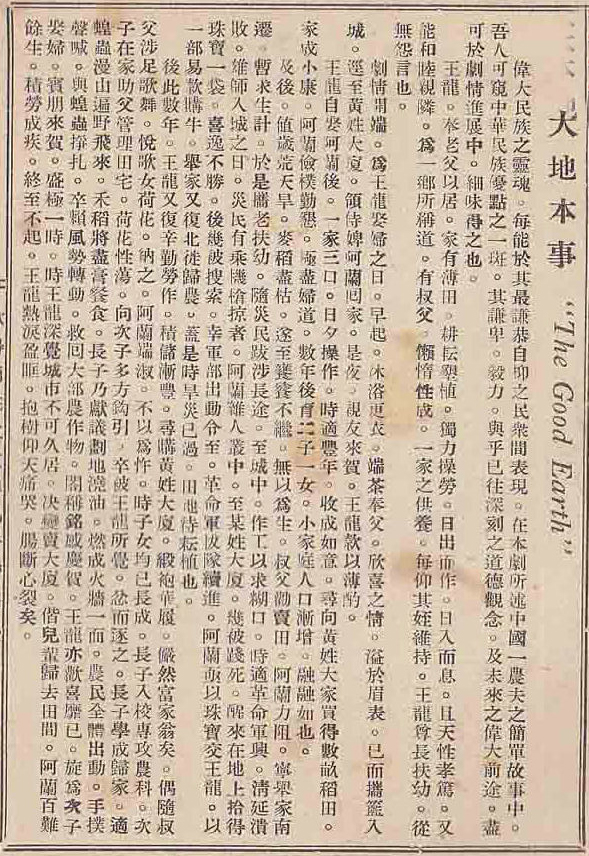 大地本事 "The Good Earth"
偉大民族之靈魂。每能於其最謙恭自抑之民衆間表現。在本劇所述中國一農夫之簡單故事中。
吾人可窺中華民族優點之一斑。其謙卑。毅力。與乎已往深刻之道德觀念。及未來之偉大前途。盡
可於劇情進展中。細味得之也。
王龍。奉老父以居。家有薄田。耕耘墾植。獨力操勞。日出而作。日入而息。且天性孝篤。又
能和睦親隣。爲一鄉所稱道。有叔父。懶惰性成。一家之供養。每仰其姪維持。王龍尊長扶幼。從
無怨言也。
劇情開端。爲王龍娶婦之日。早起。沐浴更衣。端茶奉父。欣喜之情。溢於眉表。已而攜籃入
城。逕至黃姓大廈。領侍婢阿蘭囘家。是夜。親友來賀。王龍款以薄酌。
王龍自娶阿蘭後。一家三口。日夕操作。時適豐年。收成如意。尋向黃姓大家買得數畝稻田。
家成小康。阿蘭儉樸勤懇。極盡婦道。數年後育二子一女。小家庭人口漸增。融融如也。
及後。值歲荒天旱。麥稻盡枯。遂至饔飧不繼。無以爲生。叔父勸賣田。阿蘭力阻。寧舉家南
遷。暫求生計。於是攜老扶幼。隨災民跋涉長途。至城中。作工以求糊口。時適革命軍興。清廷潰
敗。雄師入城之日。災民有乘機搶掠者。阿蘭雜人叢中。至某姓大廈。幾被踐死。醒來在地上拾得
珠寶一袋。喜逸不勝。後幾被搜索。幸軍部出動令至。革命軍拔隊續進。阿蘭亟以珠寶交王龍。以
一部易款購牛。舉家又復北徙歸農。蓋是時旱災已過。田地待耘植也。
後此數年。王龍又復辛勤勞作。積儲漸豐。尋購黃姓大廈。緞袍華履。儼然富家翁矣。偶隨叔
父涉足歌舞。悅歌女荷花。納之。阿蘭端淑。不以爲忤。時子女均已長成。長子入校專攻農科。次
子在家助父管理田宅。荷花性蕩。向次子多方鈎引。卒被王龍所覺。忿而逐之。長子學成歸家。適
蝗蟲漫山遍野飛來。禾稻將盡膏饕食。長子乃獻議劃地澆油。燃成火牆一面。農民全體出動。手撲
聲喊。與蝗蟲掙扎。卒賴風勢轉動。救囘大部農作物。闔稱銘感慶賀。王龍亦歡喜靡已。旋爲次子
娶婦。賓朋來賀。盛極一時。時王龍深覺城市不可久居。決變賣大廈。偕兒輩歸去田間。阿蘭百難
餘生。積勞成疾。終至不起。王龍熱淚盈眶。抱樹仰天痛哭。腸斷心裂矣。